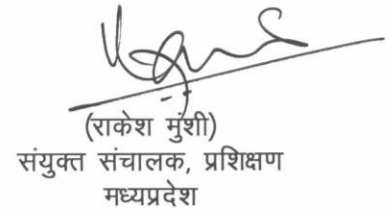 (राकेश मुंशी)
संयुक्त संचालक, प्रशिक्षण
मध्यप्रदेश